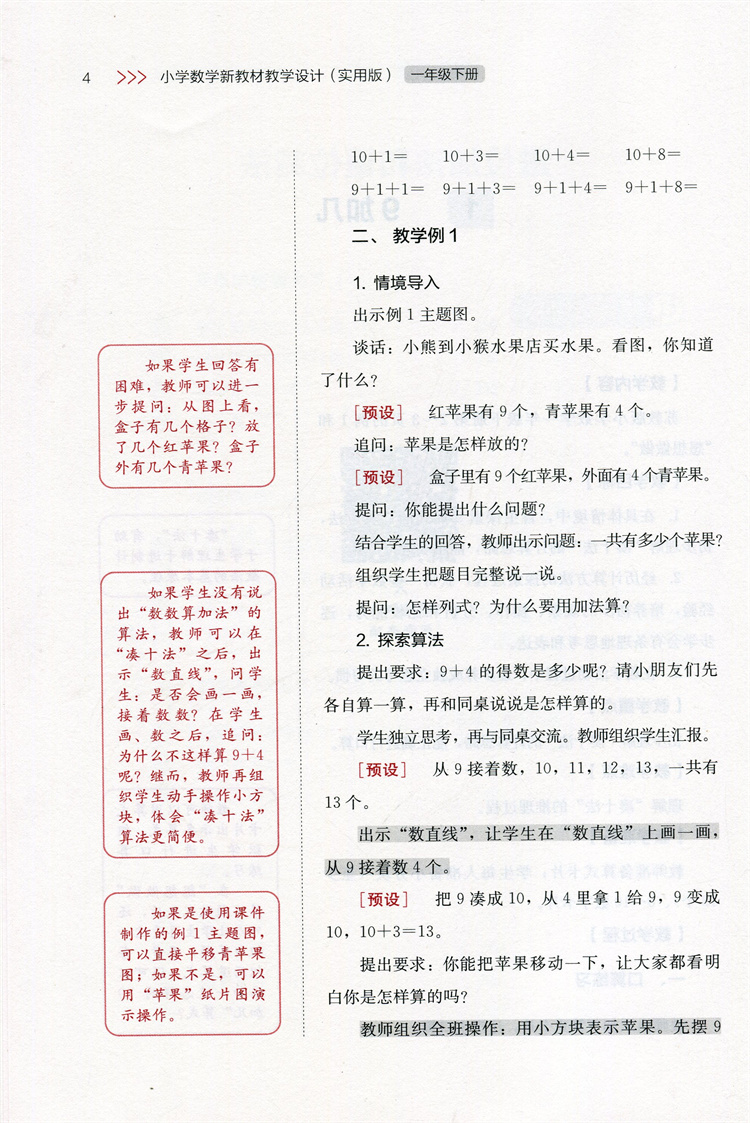 4 >>> 小学数学新教材教学设计(实用版) 一年级下册
10+1= 10+3= 10+4= 10+8=
9+1+1= 9+1+3= 9+1+4= 9+1+8=
二、 教学例1
1. 情境导入
出示例1主题图。
谈话:小熊到小猴水果店买水果。看图,你知道
了什么?
[预设] 红苹果有9个,青苹果有4个。
追问:苹果是怎样放的?
[预设] 盒子里有9个红苹果,外面有4个青苹果。
提问:你能提出什么问题?
结合学生的回答,教师出示问题:一共有多少个苹果?
组织学生把题目完整说一说。
提问:怎样列式?为什么要用加法算?
2. 探索算法
提出要求:9+4的得数是多少呢?请小朋友们先
各自算一算,再和同桌说说是怎样算的。
学生独立思考,再与同桌交流。教师组织学生汇报。
[预设] 从9接着数,10,11,12,13,一共有
13个。
出示“数直线”,让学生在“数直线”上画一画,
从9接着数4个。
[预设] 把9凑成10,从4里拿1给9,9变成
10,10+3=13。
提出要求:你能把苹果移动一下,让大家都看明
白你是怎样算的吗?
教师组织全班操作:用小方块表示苹果。先摆9
如果学生回答有
困难,教师可以进一
步提问:从图上看,
盒子有几个格子?放
了几个红苹果?盒子
外有几个青苹果?
如果学生没有说
出“数数算加法”的
算法,教师可以在
“凑十法”之后,出
示“数直线”,问学
生:是否会画一画,
接着数数?在学生
画、数之后,追问:
为什么不这样算9+4
呢?继而,教师再组
织学生动手操作小方
块,体会“凑十法”
算法更简便。
如果是使用课件
制作的例1主题图,
可以直接平移青苹果
图;如果不是,可以
用“苹果”纸片图演
示操作。